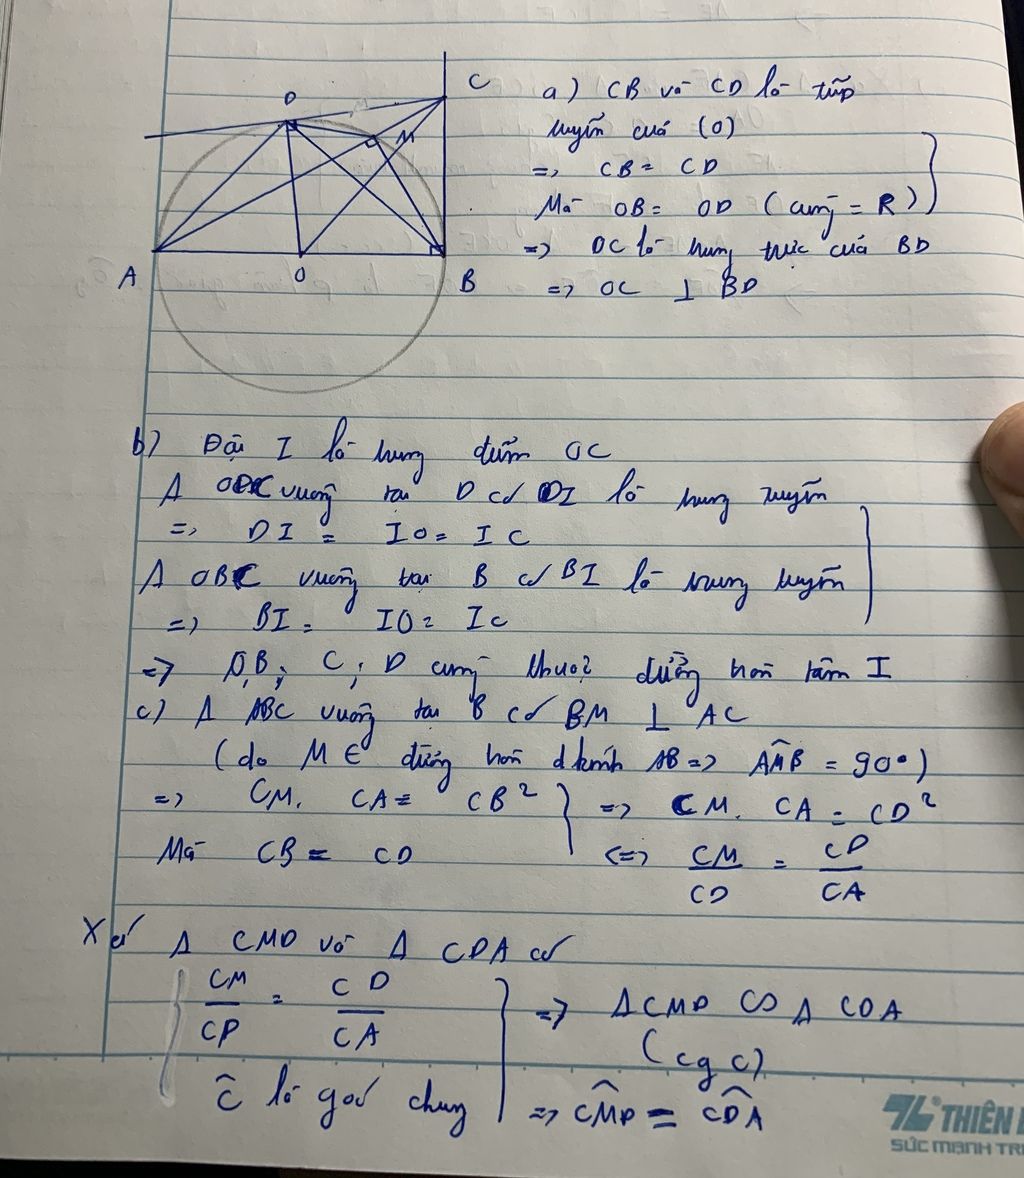 D
C
M
A
O
B
a) CB và CD là tiếp
tuyến của (O)
=> CB = CD
Mà OB = OD (cùng = R)
=> OC là trung trực của BD
=> OC ⊥ BD
b) Đặt I là trung điểm OC
Δ ODC vuông tại D có DI là trung tuyến
=> DI = IO = IC
Δ OBC vuông tại B có BI là trung tuyến
=> BI = IO = IC
=> O, B; C; D cùng thuộc đường tròn tâm I
c) Δ ABC vuông tại B có BM ⊥ AC
(do M ∈ đường tròn đkính AB => AM̂B = 90°)
=> CM. CA = CB² => CM. CA = CD²
Mà CB = CD <=> CM/CD = CD/CA
Xét Δ CMD và Δ CDA có
CM/CD = CD/CA => ΔCMD ∽ Δ CDA
(cgc)
Ĉ là góc chung => CM̂D = CD̂A
THIÊN
SỨC MẠNH TR